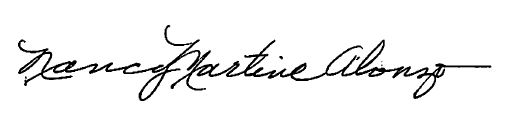 Nancy Martine Alonzo